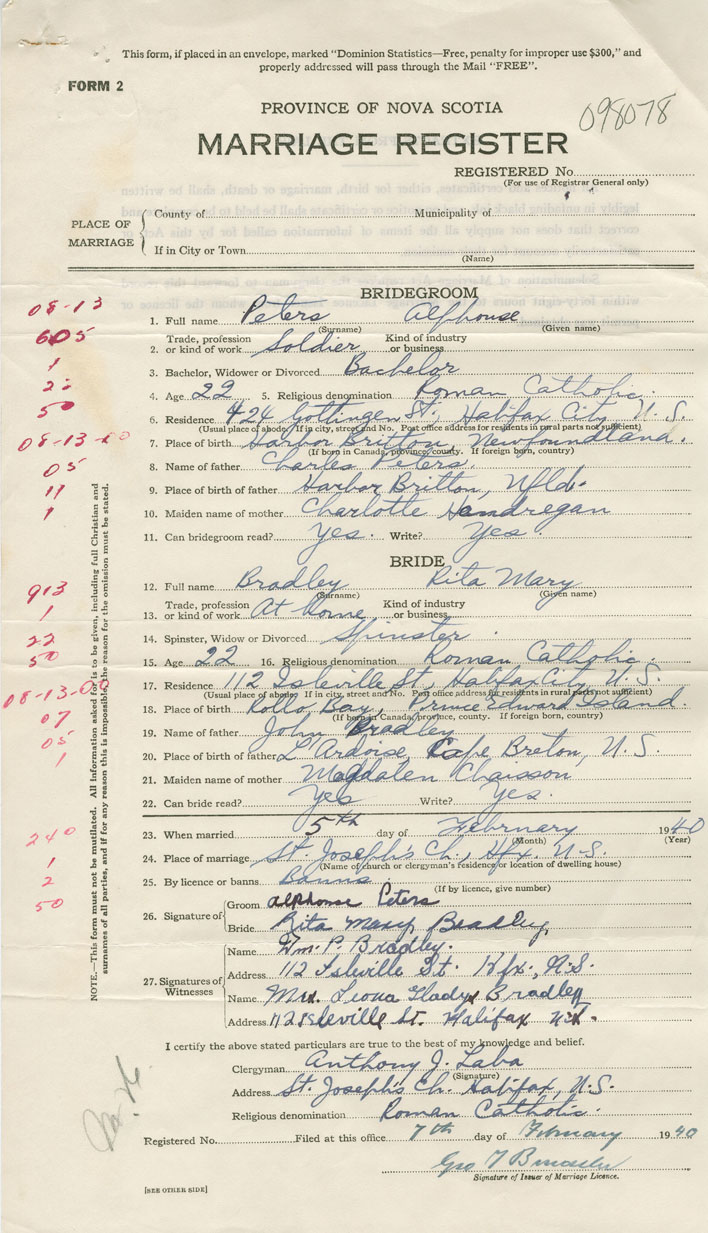 This form, if placed in an envelope, marked "Dominion Statistics—Free, penalty for improper use $300," and
properly addressed will pass through the Mail "FREE".
FORM 2
PROVINCE OF NOVA SCOTIA
098078
MARRIAGE REGISTER
REGISTERED No.
(For use of Registrar General only)
PLACE OF MARRIAGE
County of Municipality of
If in City or Town
(Name)
BRIDEGROOM
08-13
1. Full name Peters Alphonse
(Surname) (Given name)
605
2. Trade, profession or kind of work Soldier Kind of industry or business
1
3. Bachelor, Widower or Divorced Bachelor
22
4. Age 22 5. Religious denomination Roman Catholic.
50
6. Residence 424 Gottingen St., Halifax City N.S.
(Usual place of abode. If in city, street and No. Post office address for residents in rural parts not sufficient)
08-13-00
7. Place of birth Harbor Britton, Newfoundland.
(If born in Canada, province, county. If foreign born, country)
05
8. Name of father Charles Peters.
11
9. Place of birth of father Harbor Britton, Nfld.
1
10. Maiden name of mother Charlotte Handregan
11. Can bridegroom read? Yes. Write? Yes.
BRIDE
913
12. Full name Bradley Rita Mary
(Surname) (Given name)
1
13. Trade, profession or kind of work At home Kind of industry or business
22
14. Spinster, Widow or Divorced Spinster.
50
15. Age 22 16. Religious denomination Roman Catholic.
08-13-00
17. Residence 112 Isleville St, Halifax City, N.S.
(Usual place of abode. If in city, street and No. Post office address for residents in rural parts not sufficient)
07
18. Place of birth Rollo Bay, Prince Edward Island.
(If born in Canada, province, county. If foreign born, country)
05
19. Name of father John Bradley
1
20. Place of birth of father L'Ardoise, Cape Breton, N.S.
21. Maiden name of mother Magdalen Chaisson
22. Can bride read? Yes Write? Yes.
240
23. When married 5th day of February 1940
(Month) (Year)
1
24. Place of marriage St. Joseph's Ch., Hfx. N.S.
(Name of church or clergyman's residence or location of dwelling house)
2
25. By licence or banns Banns.
(If by licence, give number)
50
26. Signature of
Groom alphonse Peters
Bride Rita Mary Bradley,
27. Signatures of Witnesses
Name Wm. P. Bradley.
Address 112 Isleville St. Hfx., N.S.
Name Mrs. Leona Gladys Bradley
Address 112 Isleville St. Halifax N.S.
NOTE.—This form must not be mutilated. All Information asked for is to be given, including full Christian and
surnames of all parties, and if for any reason this is impossible the reason for the omission must be stated.
I certify the above stated particulars are true to the best of my knowledge and belief.
Clergyman Anthony J. Laba
(Signature)
Address St. Joseph's Ch. Halifax, N.S.
Religious denomination Roman Catholic.
Registered No. Filed at this office 7th day of February 1940
Signature of Issuer of Marriage Licence.
[SEE OTHER SIDE]